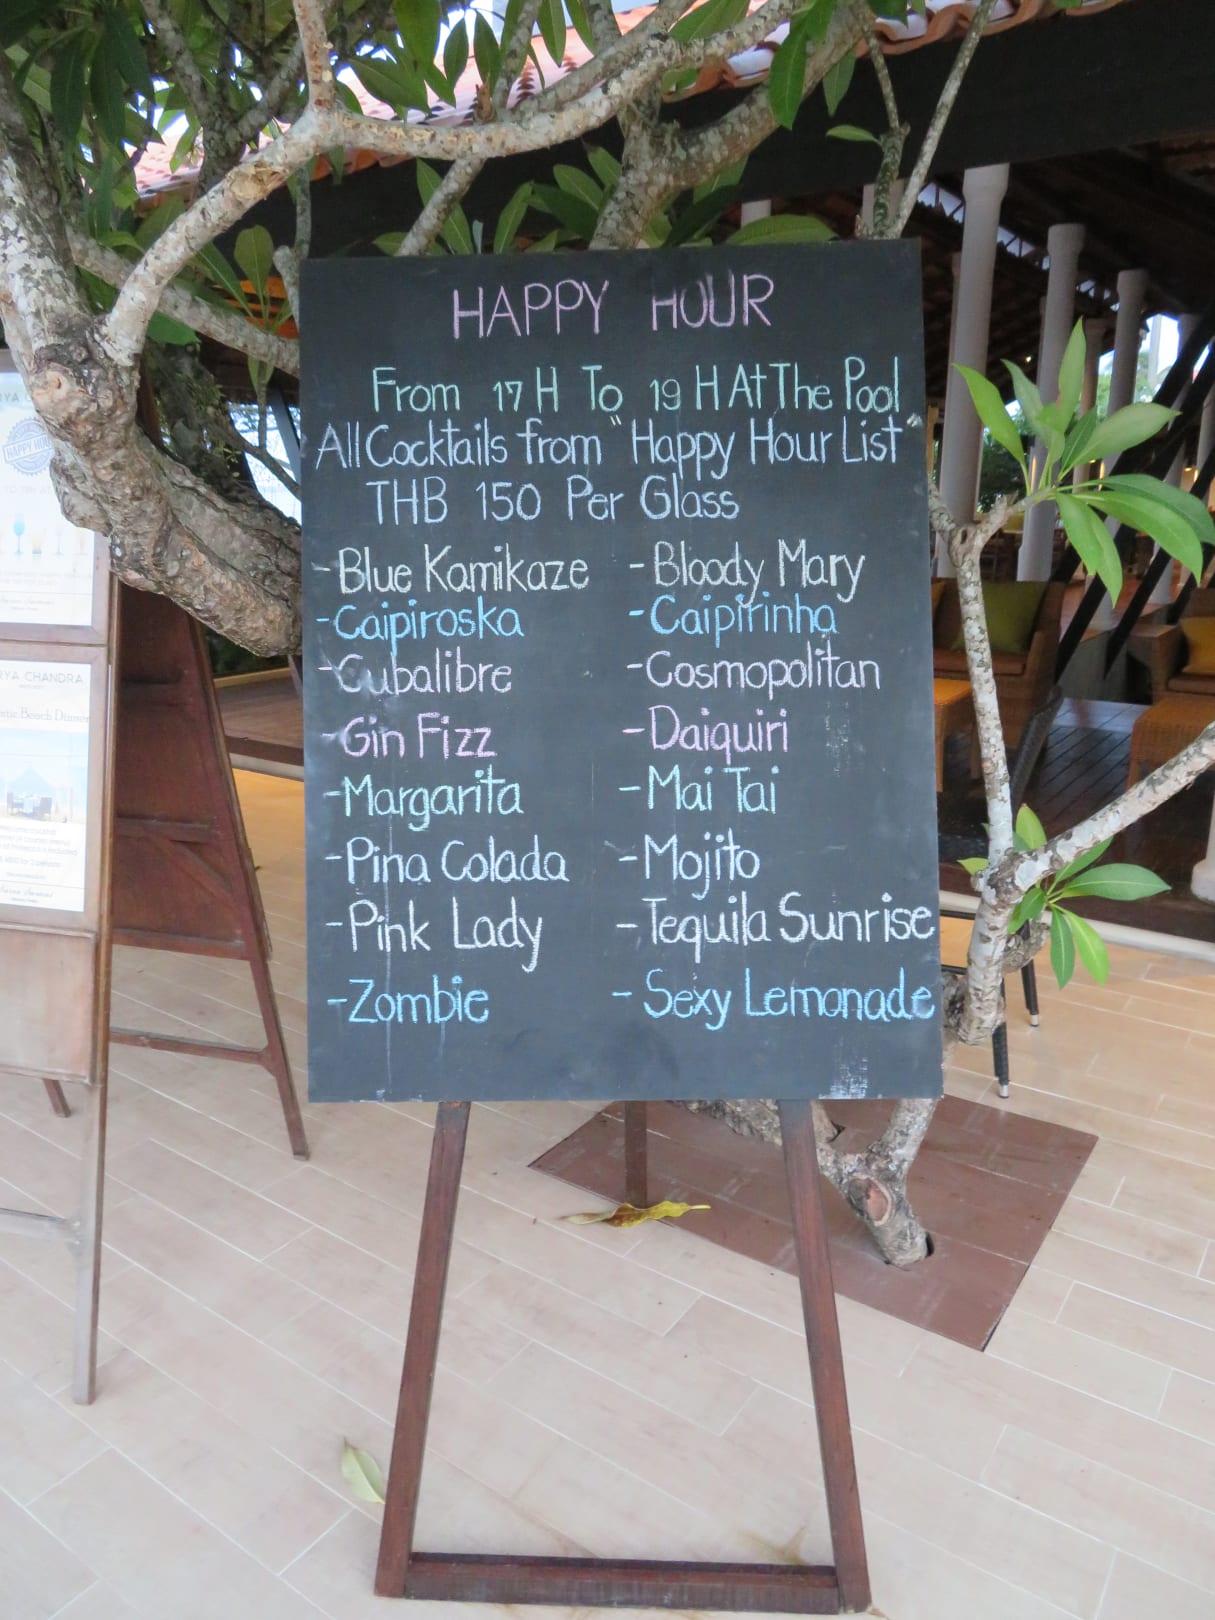 HAPPY HOUR
From 17 H To 19 H At The Pool
All Cocktails from "Happy Hour List"
THB 150 Per Glass
- Blue Kamikaze - Bloody Mary
- Caipiroska - Caipirinha
- Cubalibre - Cosmopolitan
- Gin Fizz - Daiquiri
- Margarita - Mai Tai
- Pina Colada - Mojito
- Pink Lady - Tequila Sunrise
- Zombie - Sexy Lemonade
HAPPY HOUR
RYA CHANDRA
Beach Dinner